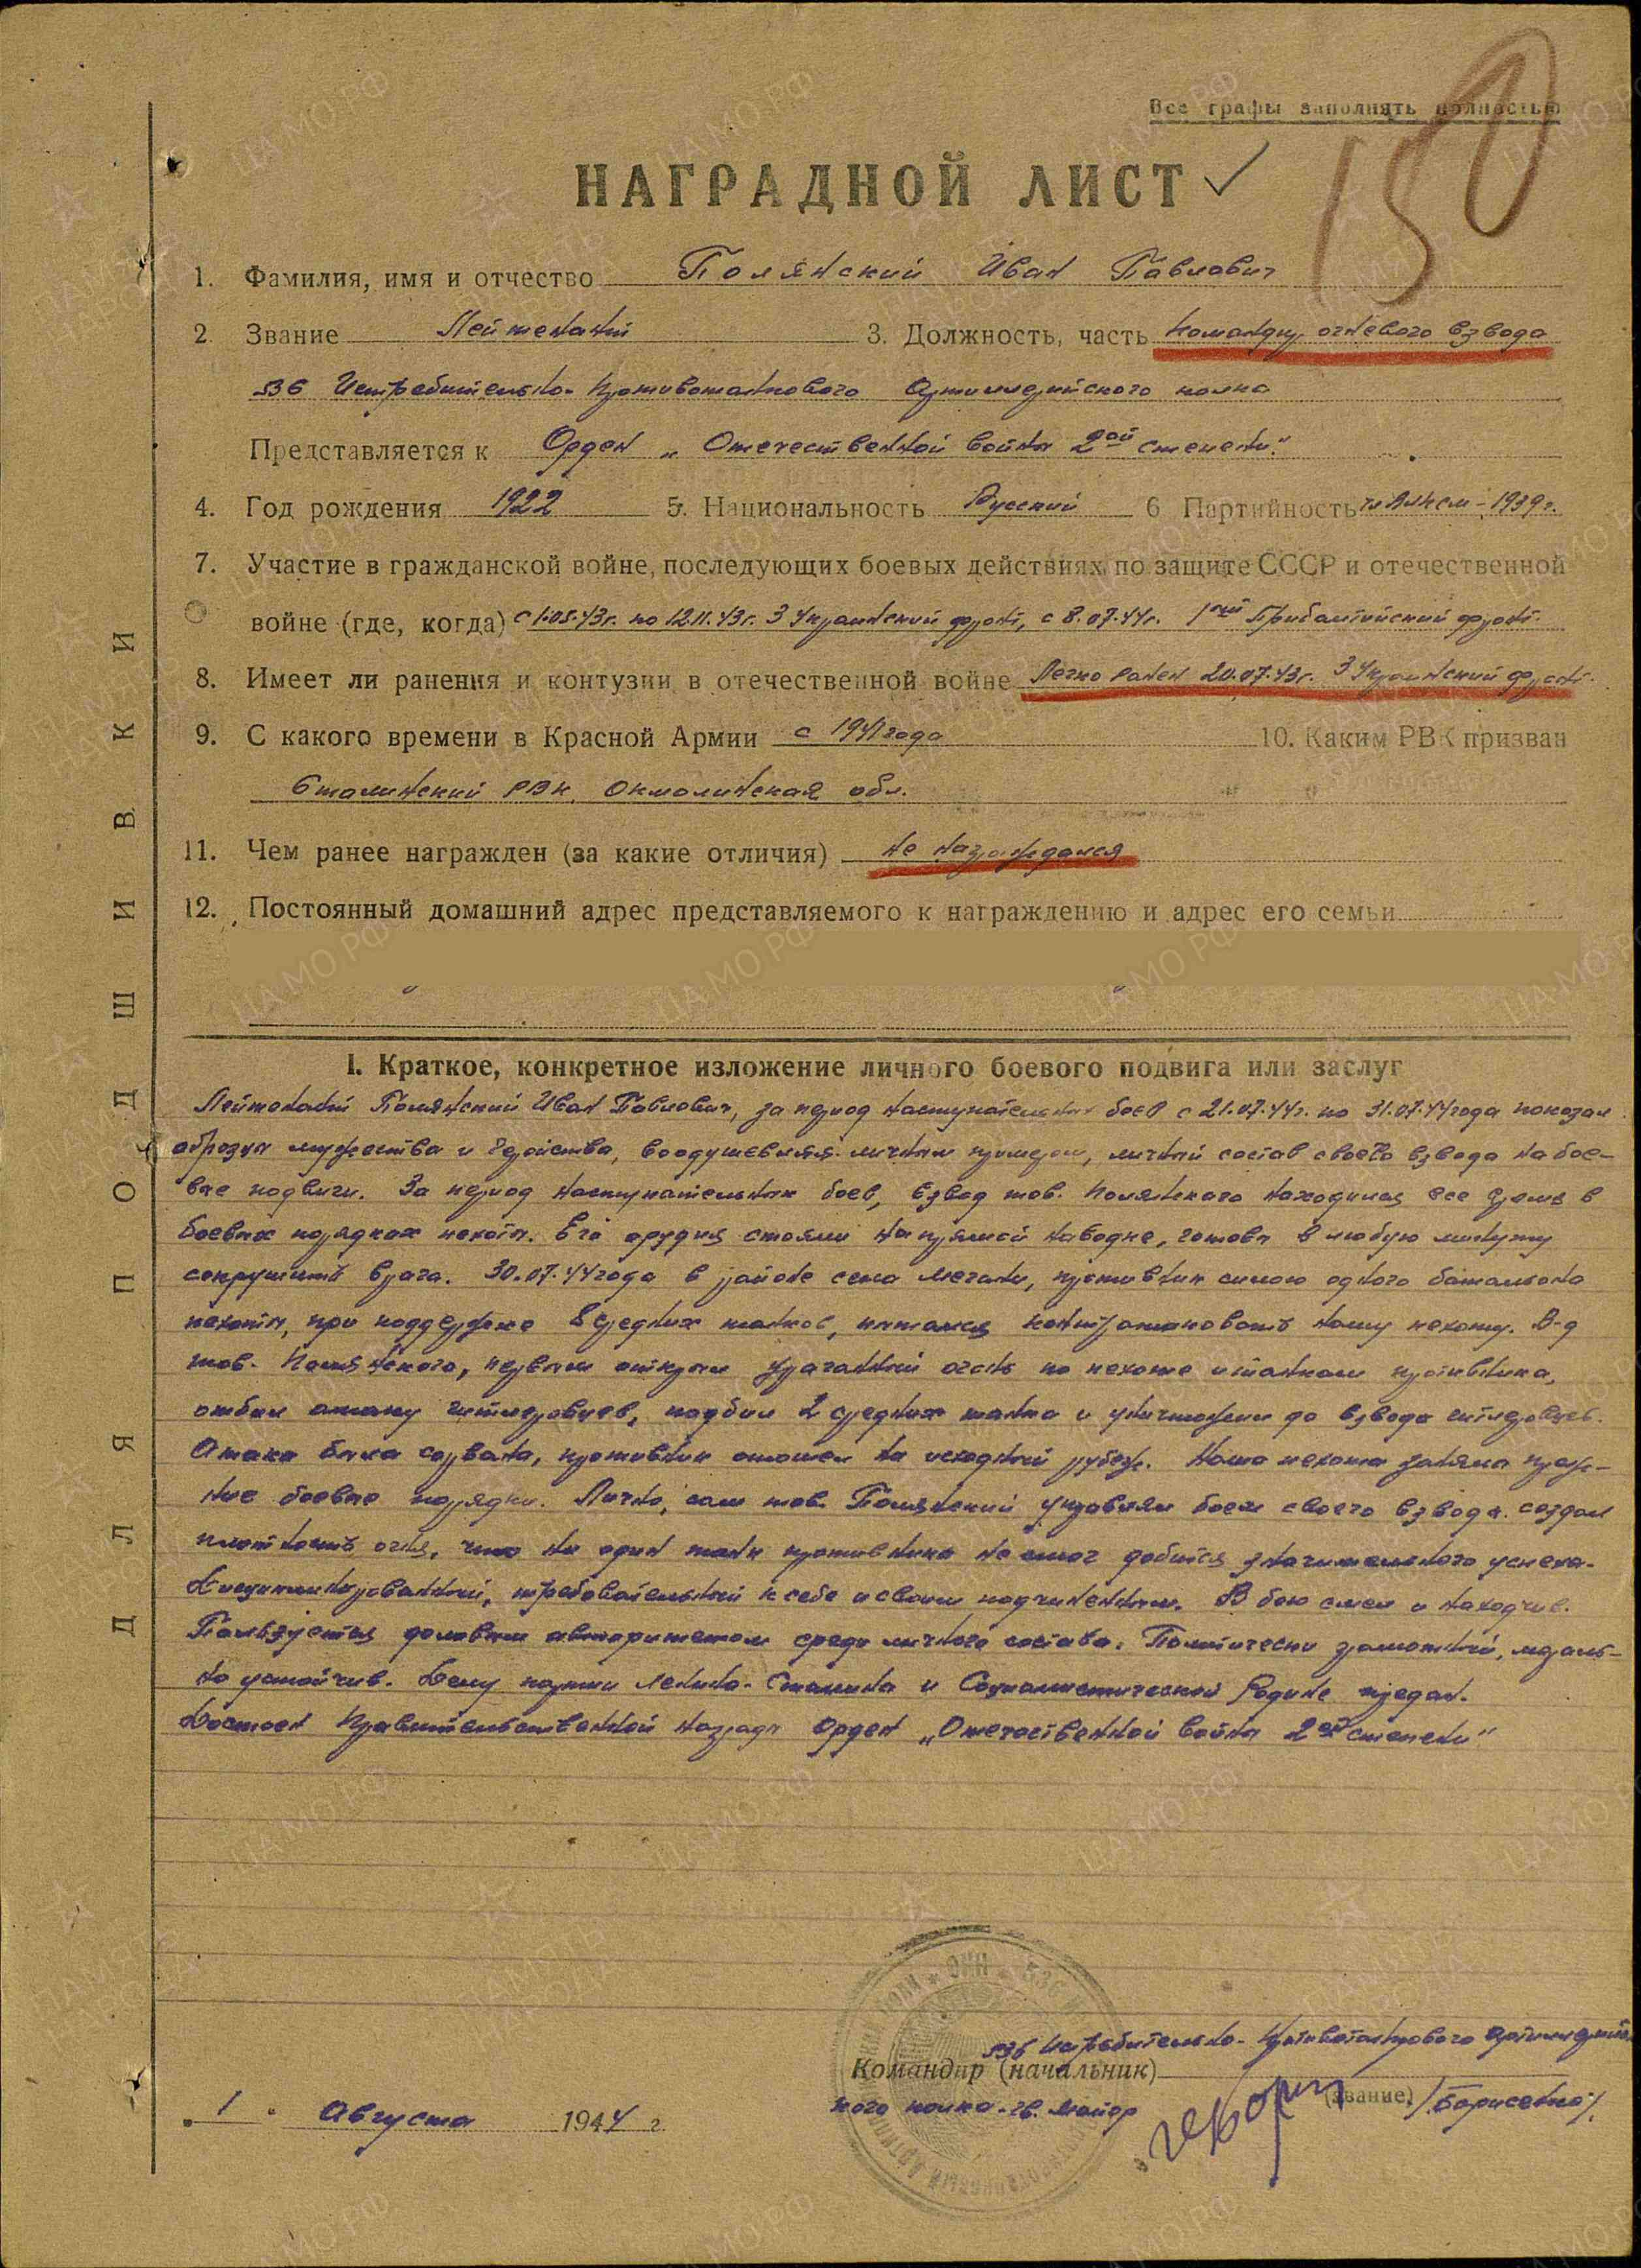 Все графы заполнять полностью
150
НАГРАДНОЙ ЛИСТ
1. Фамилия, имя и отчество Полянский Иван Павлович
2. Звание Лейтенант 3. Должность, часть Командир огневого взвода
536 Истребительно-Противотанкового Артиллерийского полка
Представляется к Орден „Отечественной войны 2ой степени."
4. Год рождения 1922 5. Национальность Русский 6 Партийность чл ВЛКСМ - 1939г.
7. Участие в гражданской войне, последующих боевых действиях по защите СССР и отечественной
войне (где, когда) с 1.05.43г. по 12.11.43г. 3 Украинский фронт, с 8.07.44г. 1ый Прибалтийский фронт.
8. Имеет ли ранения и контузии в отечественной войне Легко ранен 20.07.43г. 3 Украинский фронт.
9. С какого времени в Красной Армии с 1941 года 10. Каким РВК призван
Сталинский РВК, Окмолинская обл.
11. Чем ранее награжден (за какие отличия) Не награждался
12. Постоянный домашний адрес представляемого к награждению и адрес его семьи
I. Краткое, конкретное изложение личного боевого подвига или заслуг
Лейтенант Полянский Иван Павлович, за период наступательных боев с 21.07.44г. по 31.07.44 года показал
образцы мужества и геройства, воодушевляя личным примером, личный состав своего взвода на бое-
вые подвиги. За период наступательных боев, взвод тов. Полянского находился все время в
боевых порядках пехоты. Его орудия стояли на прямой наводке, готовы в любую минуту
сокрушить врага. 30.07.44 года в районе села противник силою одного батальона
пехоты, при поддержке 8 средних танков, пытался контратаковать нашу пехоту. В-д
тов. Полянского, первым открыл ураганный огонь по пехоте и танкам противника,
отбил атаку гитлеровцев, подбил 2 средних танка и уничтожил до взвода гитлеровцев.
Атака была сорвана, противник отошел на исходный рубеж. Наша пехота заняла преж-
ние боевые порядки. Лично, сам тов. Полянский управлял боем своего взвода. создал
плотность огня, что ни один танк противника не смог добится значительного успеха.
Дисциплинированный, требовательный к себе и своим подчиненным. В бою смел и находчив.
Пользуется деловым авторитетом среди личного состава. Политически грамотный, мораль-
но устойчив. Делу партии Ленина-Сталина и Социалистической Родине предан.
Достоен Правительственной награды Орден „Отечественной войны 2ой степени"
536 Истребительно-Противотанкового Артиллерийс
Командир (начальник)
кого полка-гв. майор (звание) /Борисенко/.
„ 1 " Августа 1944 г.
ДЛЯ ПОДШИВКИ